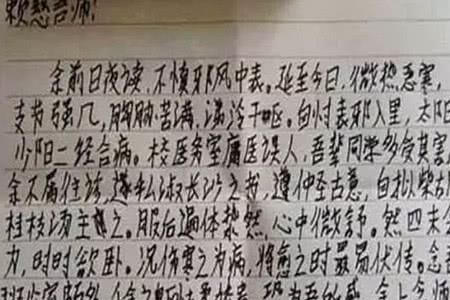 赖慈吾师:
余前日夜读，不慎邪风中表。延至今日，微热恶寒，
支节强几，胸胁苦满，涕泠干呕。自忖表邪入里，太阳
少阳二经合病。校医务室庸医误人，吾辈同学多受其害，
余不屑往诊，遂私淑长沙之书，遵仲圣古意，自拟柴胡
桂枝汤主之。服后遍体漐然，心中微舒。然四末
力，时时欲卧。况伤寒之为病，将愈之时最易伏传。